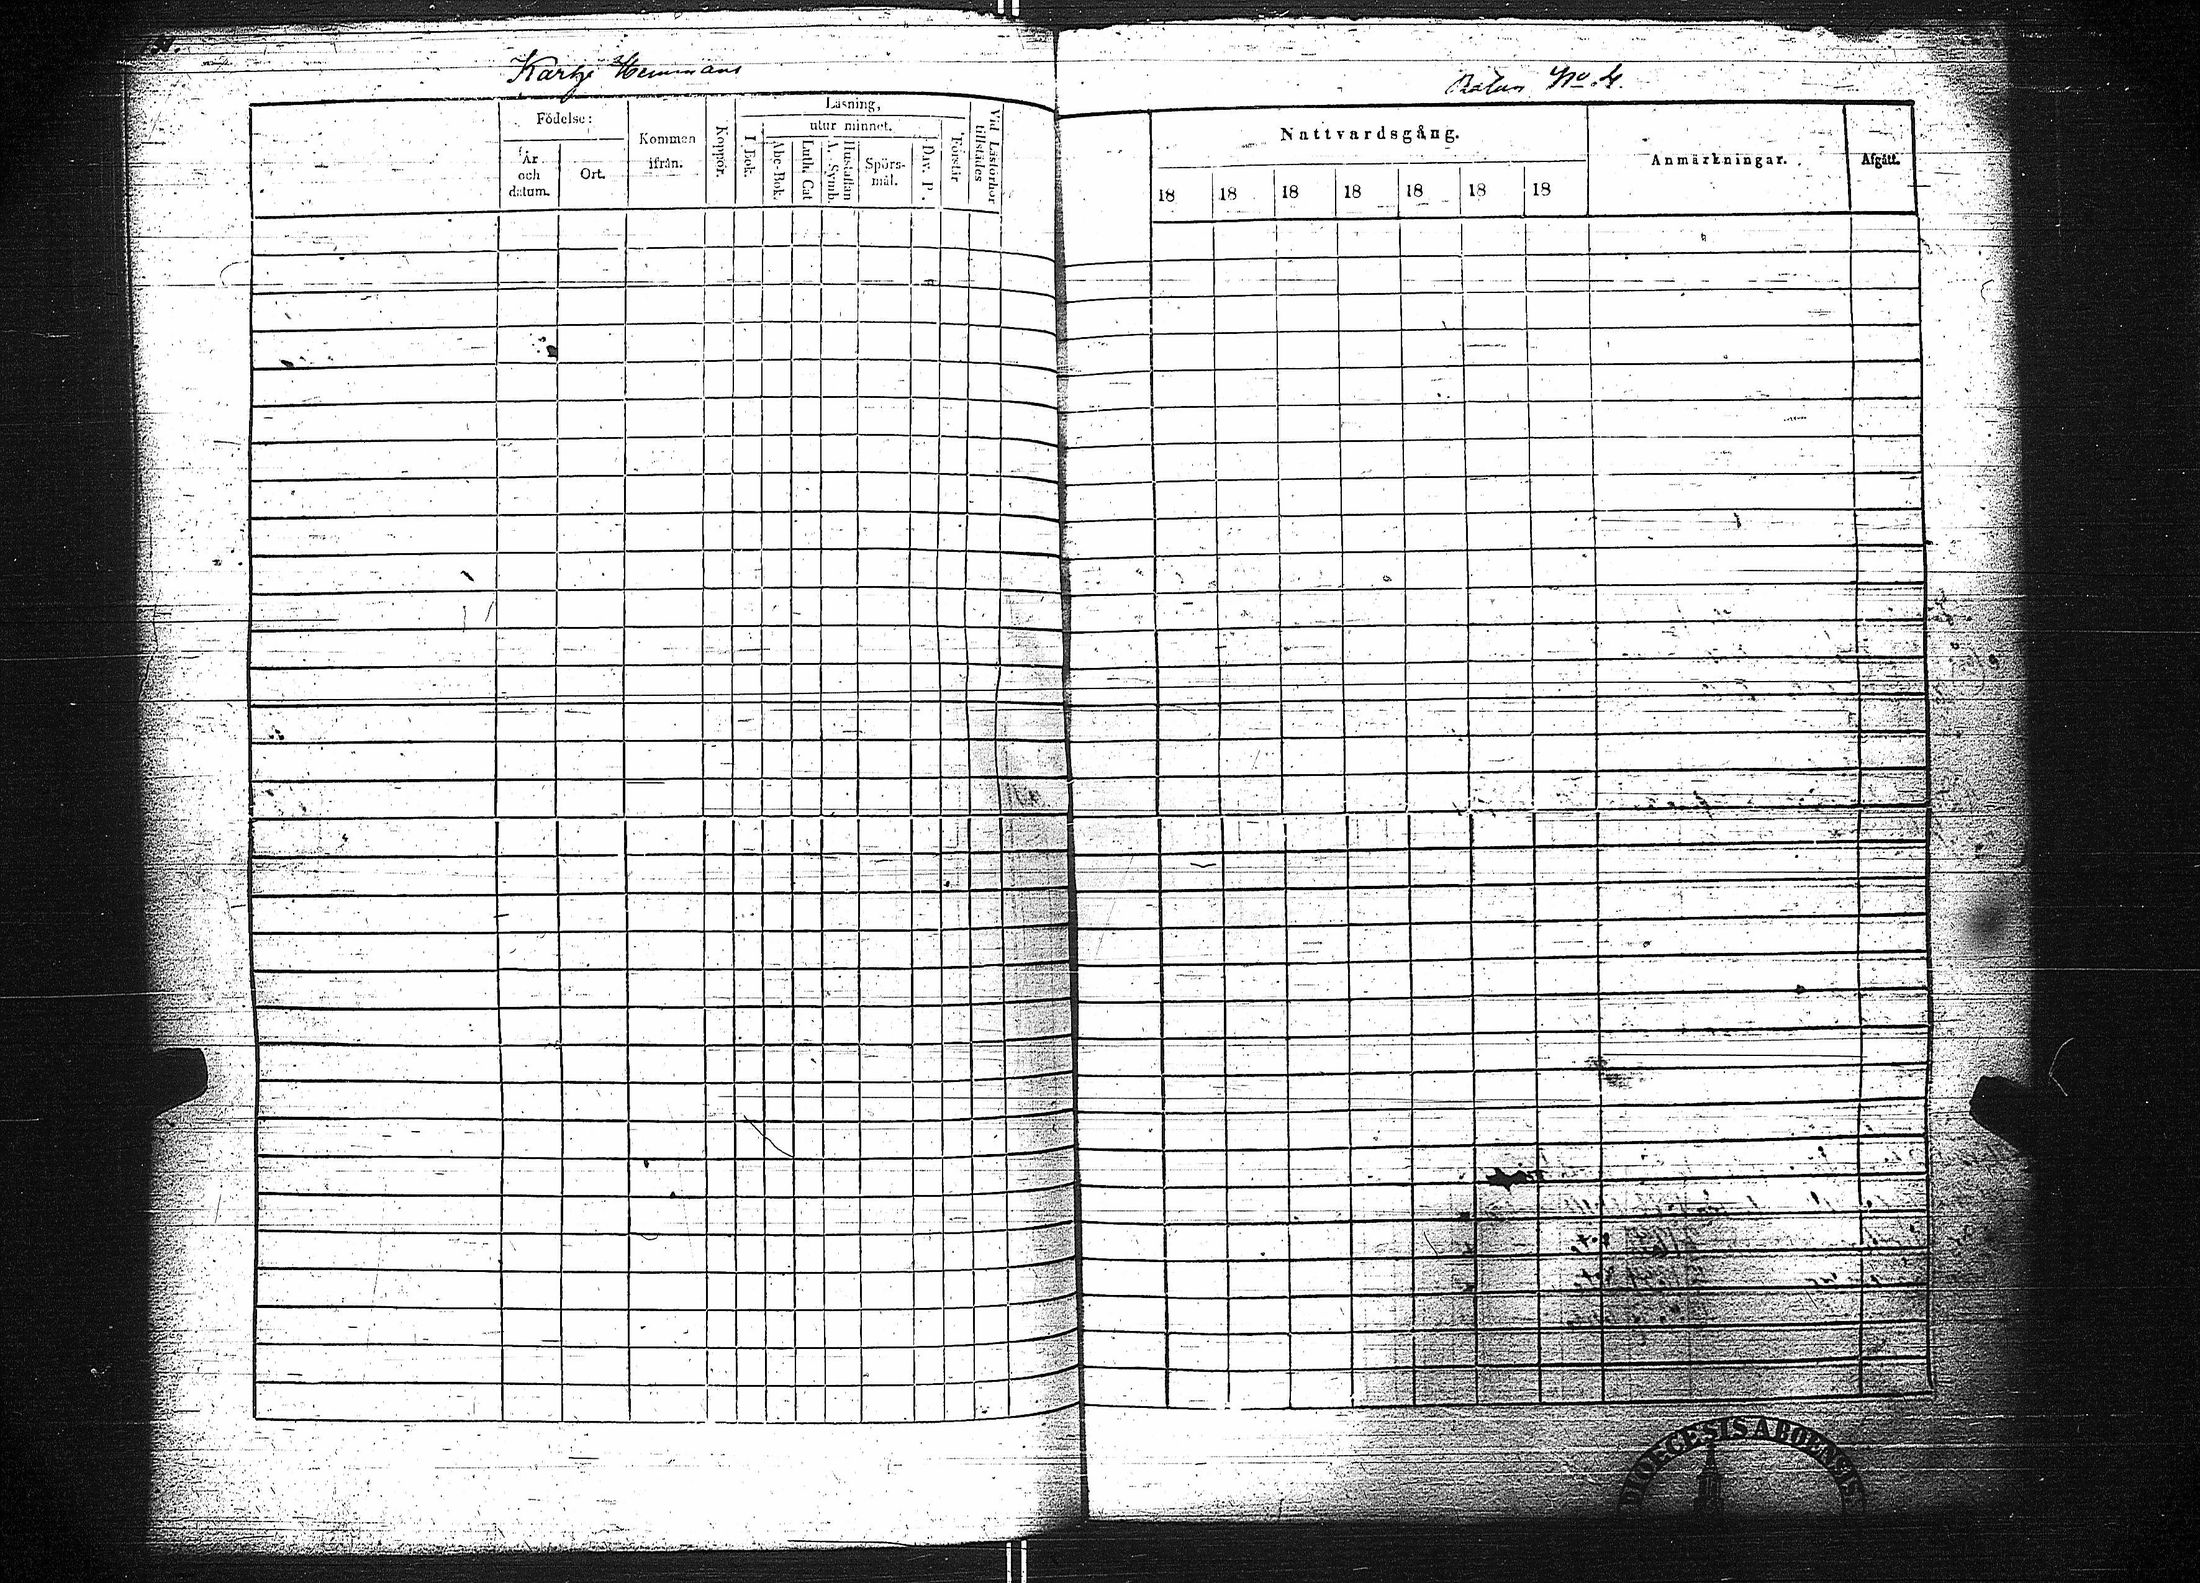 Karhi Hemmans
Födelse:
År och datum.
Ort.
Kommen ifrån.
Koppor.
Läsning,
I Bok.
utur minnet.
Abc-Bok.
Luth. Cat
Hustaflan A. Symb.
Spörs-mål.
Dav. P.
Förstår
Vid Läsförhör tillstädes
No 4.
Nattvardsgång.
18 18 18 18 18 18 18
Anmärkningar.
Afgått.
DIOECESIS ABOENSIS